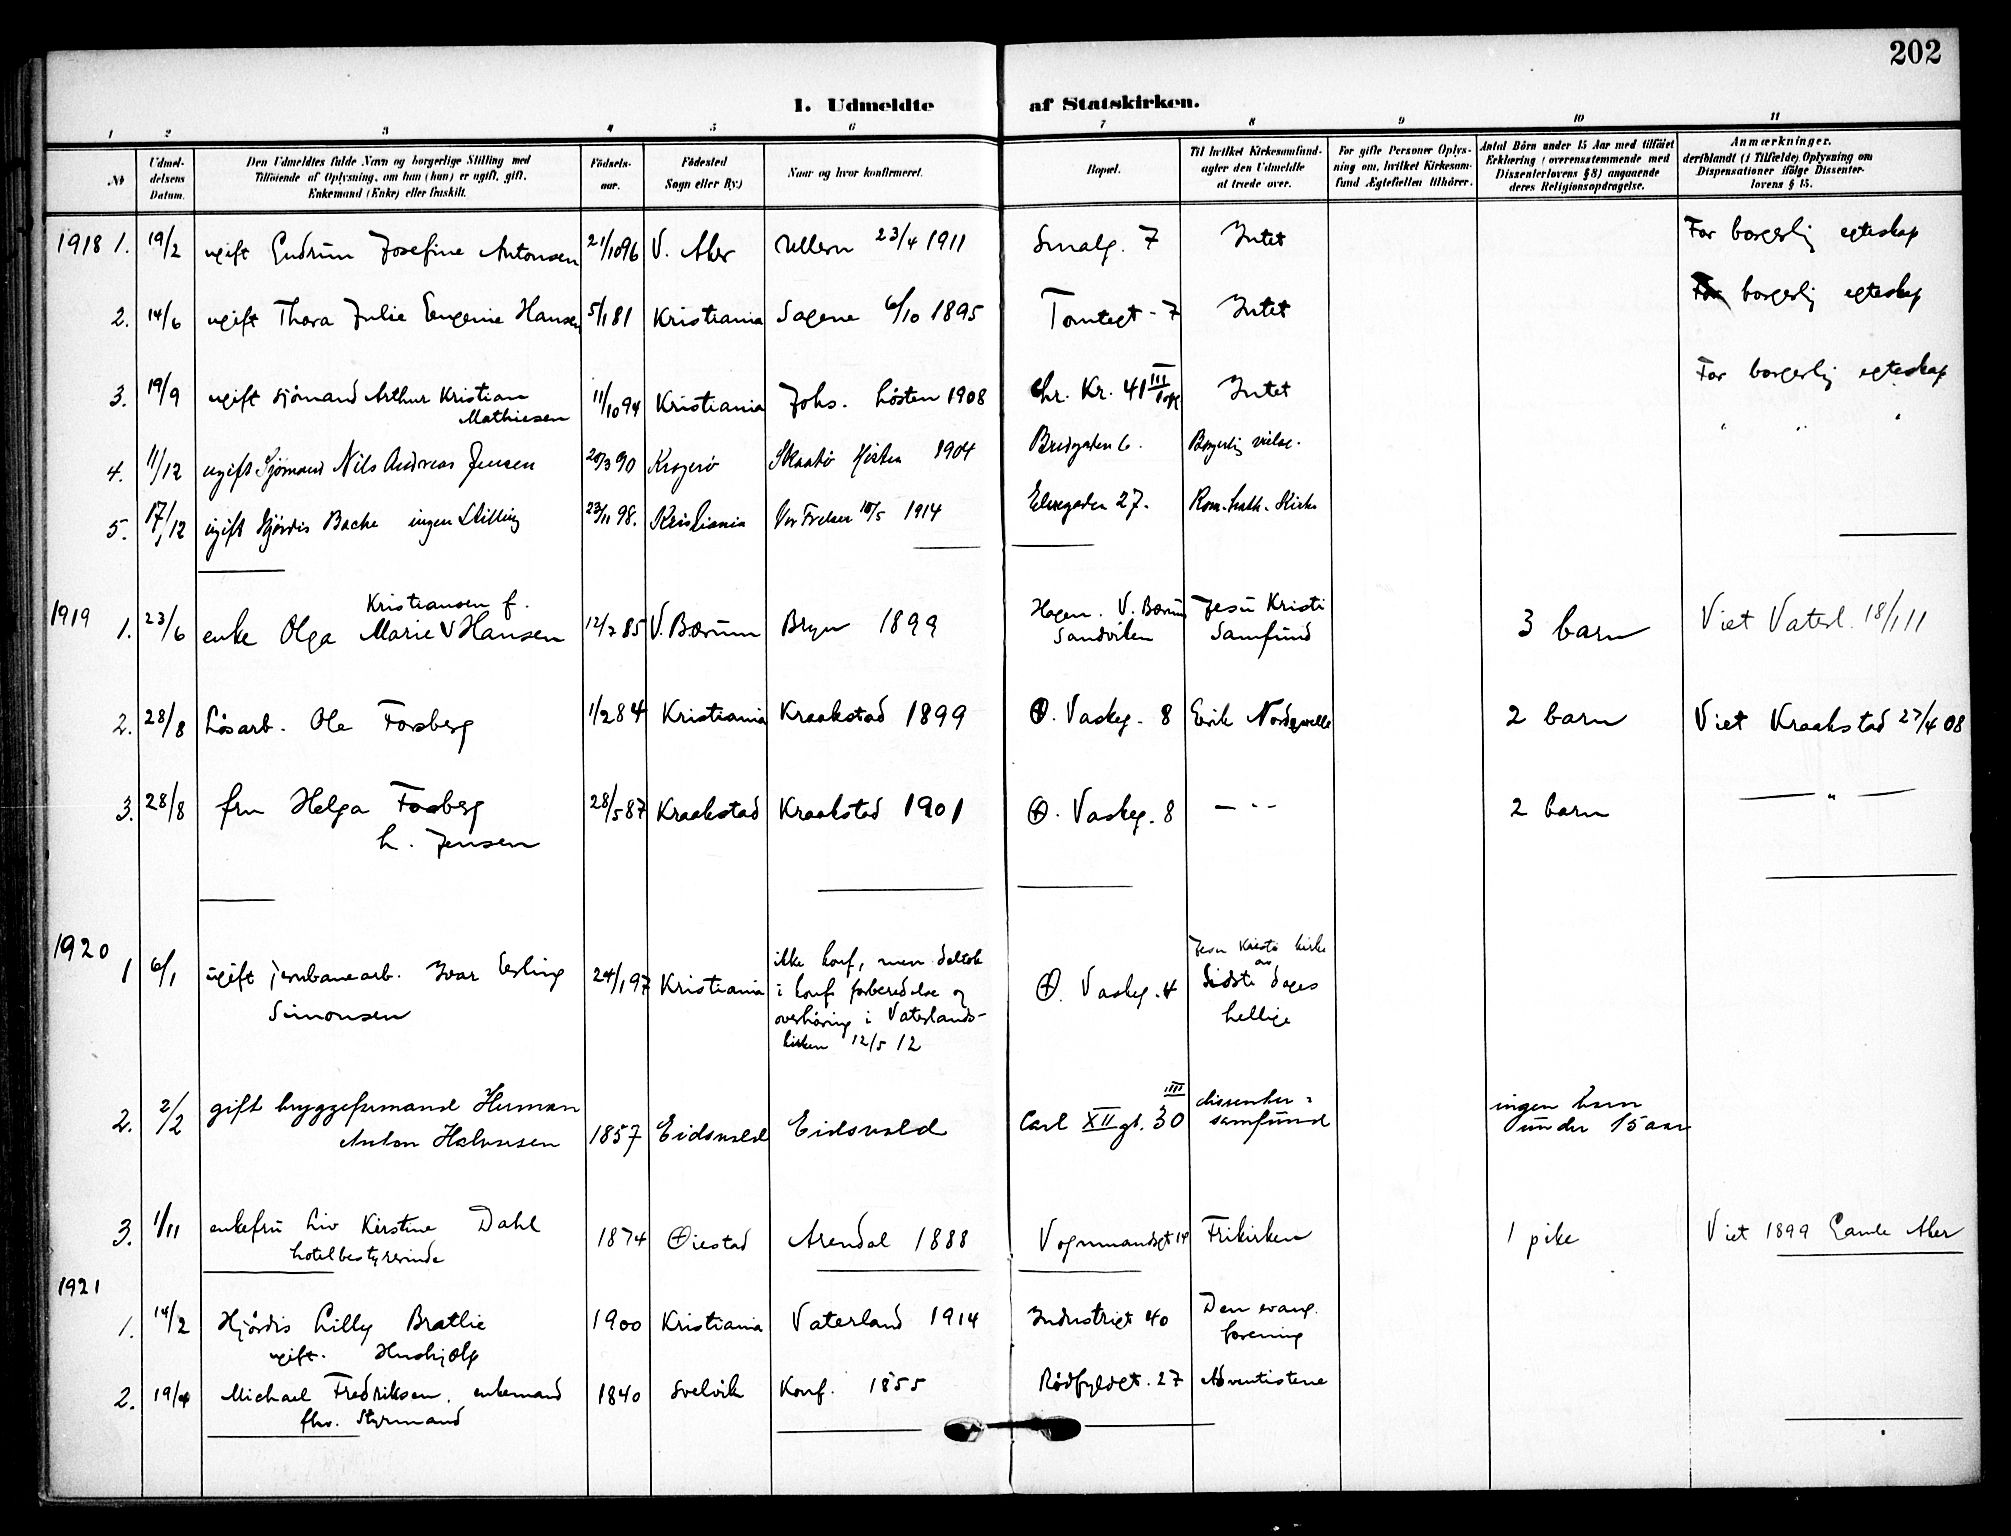 202
I. Udmeldte af Statskirken.
1 2 3 4 5 6 7 8 9 10 11
No
Udmel-
delsens
Datum.
Den Udmeldtes fulde Navn og borgerlige Stilling med
Tilföiende af Oplysning, om han (hun) er ugift, gift,
Enkemand (Enke) eller fraskilt.
Födsels-
aar.
Födested
(Sogn eller By.)
Naar og hvor konfirmeret.
Bopæl.
Til hvilket Kirkesamfund-
agter den Udmeldte
at træde over.
For gifte Personer Oplys-
ning om, hvilket Kirkesam-
fund Ægtefællen tilhörer.
Antal Börn under 15 Aar med tilföiet
Erklæring (overensstemmende med
Dissenterlovens § 8) angaaende
deres Religionsopdragelse.
Anmærkninger,
deriblandt (i Tilfælde) Oplysning om
Dispensationer ifölge Dissenter-
lovens § 15.
1918 1. 19/2 ugift Gudrun Josefine Antonsen 21/1096 V. Aker Ullern 23/4 1911 Smalg. 7 Intet For borgerlig egteskap
2. 14/6 ugift Thora Julie Eugenie Hansen 5/181 Kristiania Sagene 6/10 1895 Tomtegt - 7 Intet For borgerlig egteskap
3. 19/9 ugift sjömand Arthur Kristian
Mathiesen 11/1094 Kristiania Johs. hösten 1908 Chr. Kr. 41 III Intet For borgerlig egteskap
4. 11/12 ugift Sjömand Nils Andreas Jensen 20/390 Kragerö Skaatö Hösten 1904 Bredgaden 6. Borgerlig vielse. " " "
5. 17/12 ugift Hjördis Bache ingen Stilling 23/11 98. Kristiania Vor Frelser 10/5 1914 Elvegaden 27. Rom. kath. Kirke
1919 Kristiansen f.
1. 23/6 enke Olga Marie V Hansen 12/785 V. Bærum Bryn 1899 Hagen. V. Bærum
Sandviken Jesu Kristi
Samfund 3 barn Viet Vaterl. 18/1 11
2. 28/8 Lösarb. Ole Forsberg 1/284 Kristiania Kraakstad 1899 Ø. Vaskeg. 8 Erik Nordquelle 2 barn Viet Kraakstad 27/4 08
3. 28/8 fru Helga Forsberg
h. Jensen 28/587 Kraakstad Kraakstad 1901 Ø. Vaskeg. 8 — " — 2 barn — " —
1920
1 6/1 ugift jernbanearb. Ivar Erling
Simonsen 24/197 Kristiania ikke konf, men deltok
i konf forberedelse og
overhöring i Vaterlands-
kirken 12/5 12 Ø. Vaskeg. 4 Jesu Kristi kirke
av
Sidste dages
hellige
2. 2/2 gift bryggeformand Herman
Anton Halvorsen 1857 Eidsvold Eidsvold Carl XII gt. 30 III dissenter-
samfund ingen barn
under 15 aar
3. 1/11 enkefru Liv Kirstine Dahl
hotelbestyrerinde 1874 Øiestad Arendal 1888 Vognmandsgt 14 Frikirken 1 pike Viet 1899 Gamle Aker
1921
1. 14/2 Hjördis Lilly Bratlie
ugift. Hushjelp 1900 Kristiania Vaterland 1914 Industrigt 40 Den evang.
forening
2. 19/4 Michael Fredriksen, enkemand
fhv. Styrmand 1840 Svelvik Konf. 1855 Rödfyldgt. 27 Adventistene